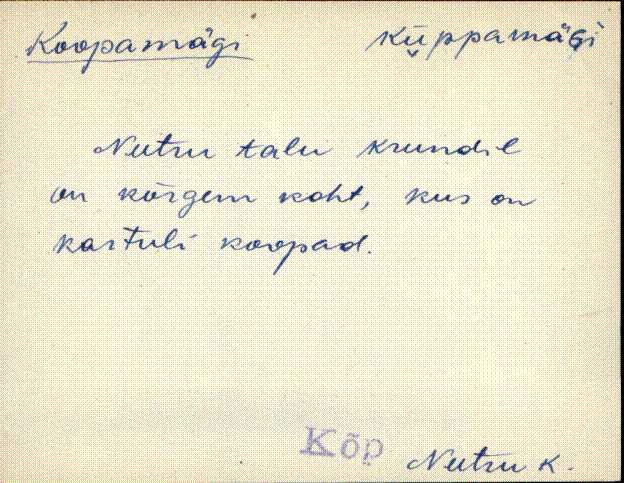 Koopamägi küppamägi
Nutru talu krundil
on kõrgem koht, kus on
kartuli koopad.
Kõp Nutru k.